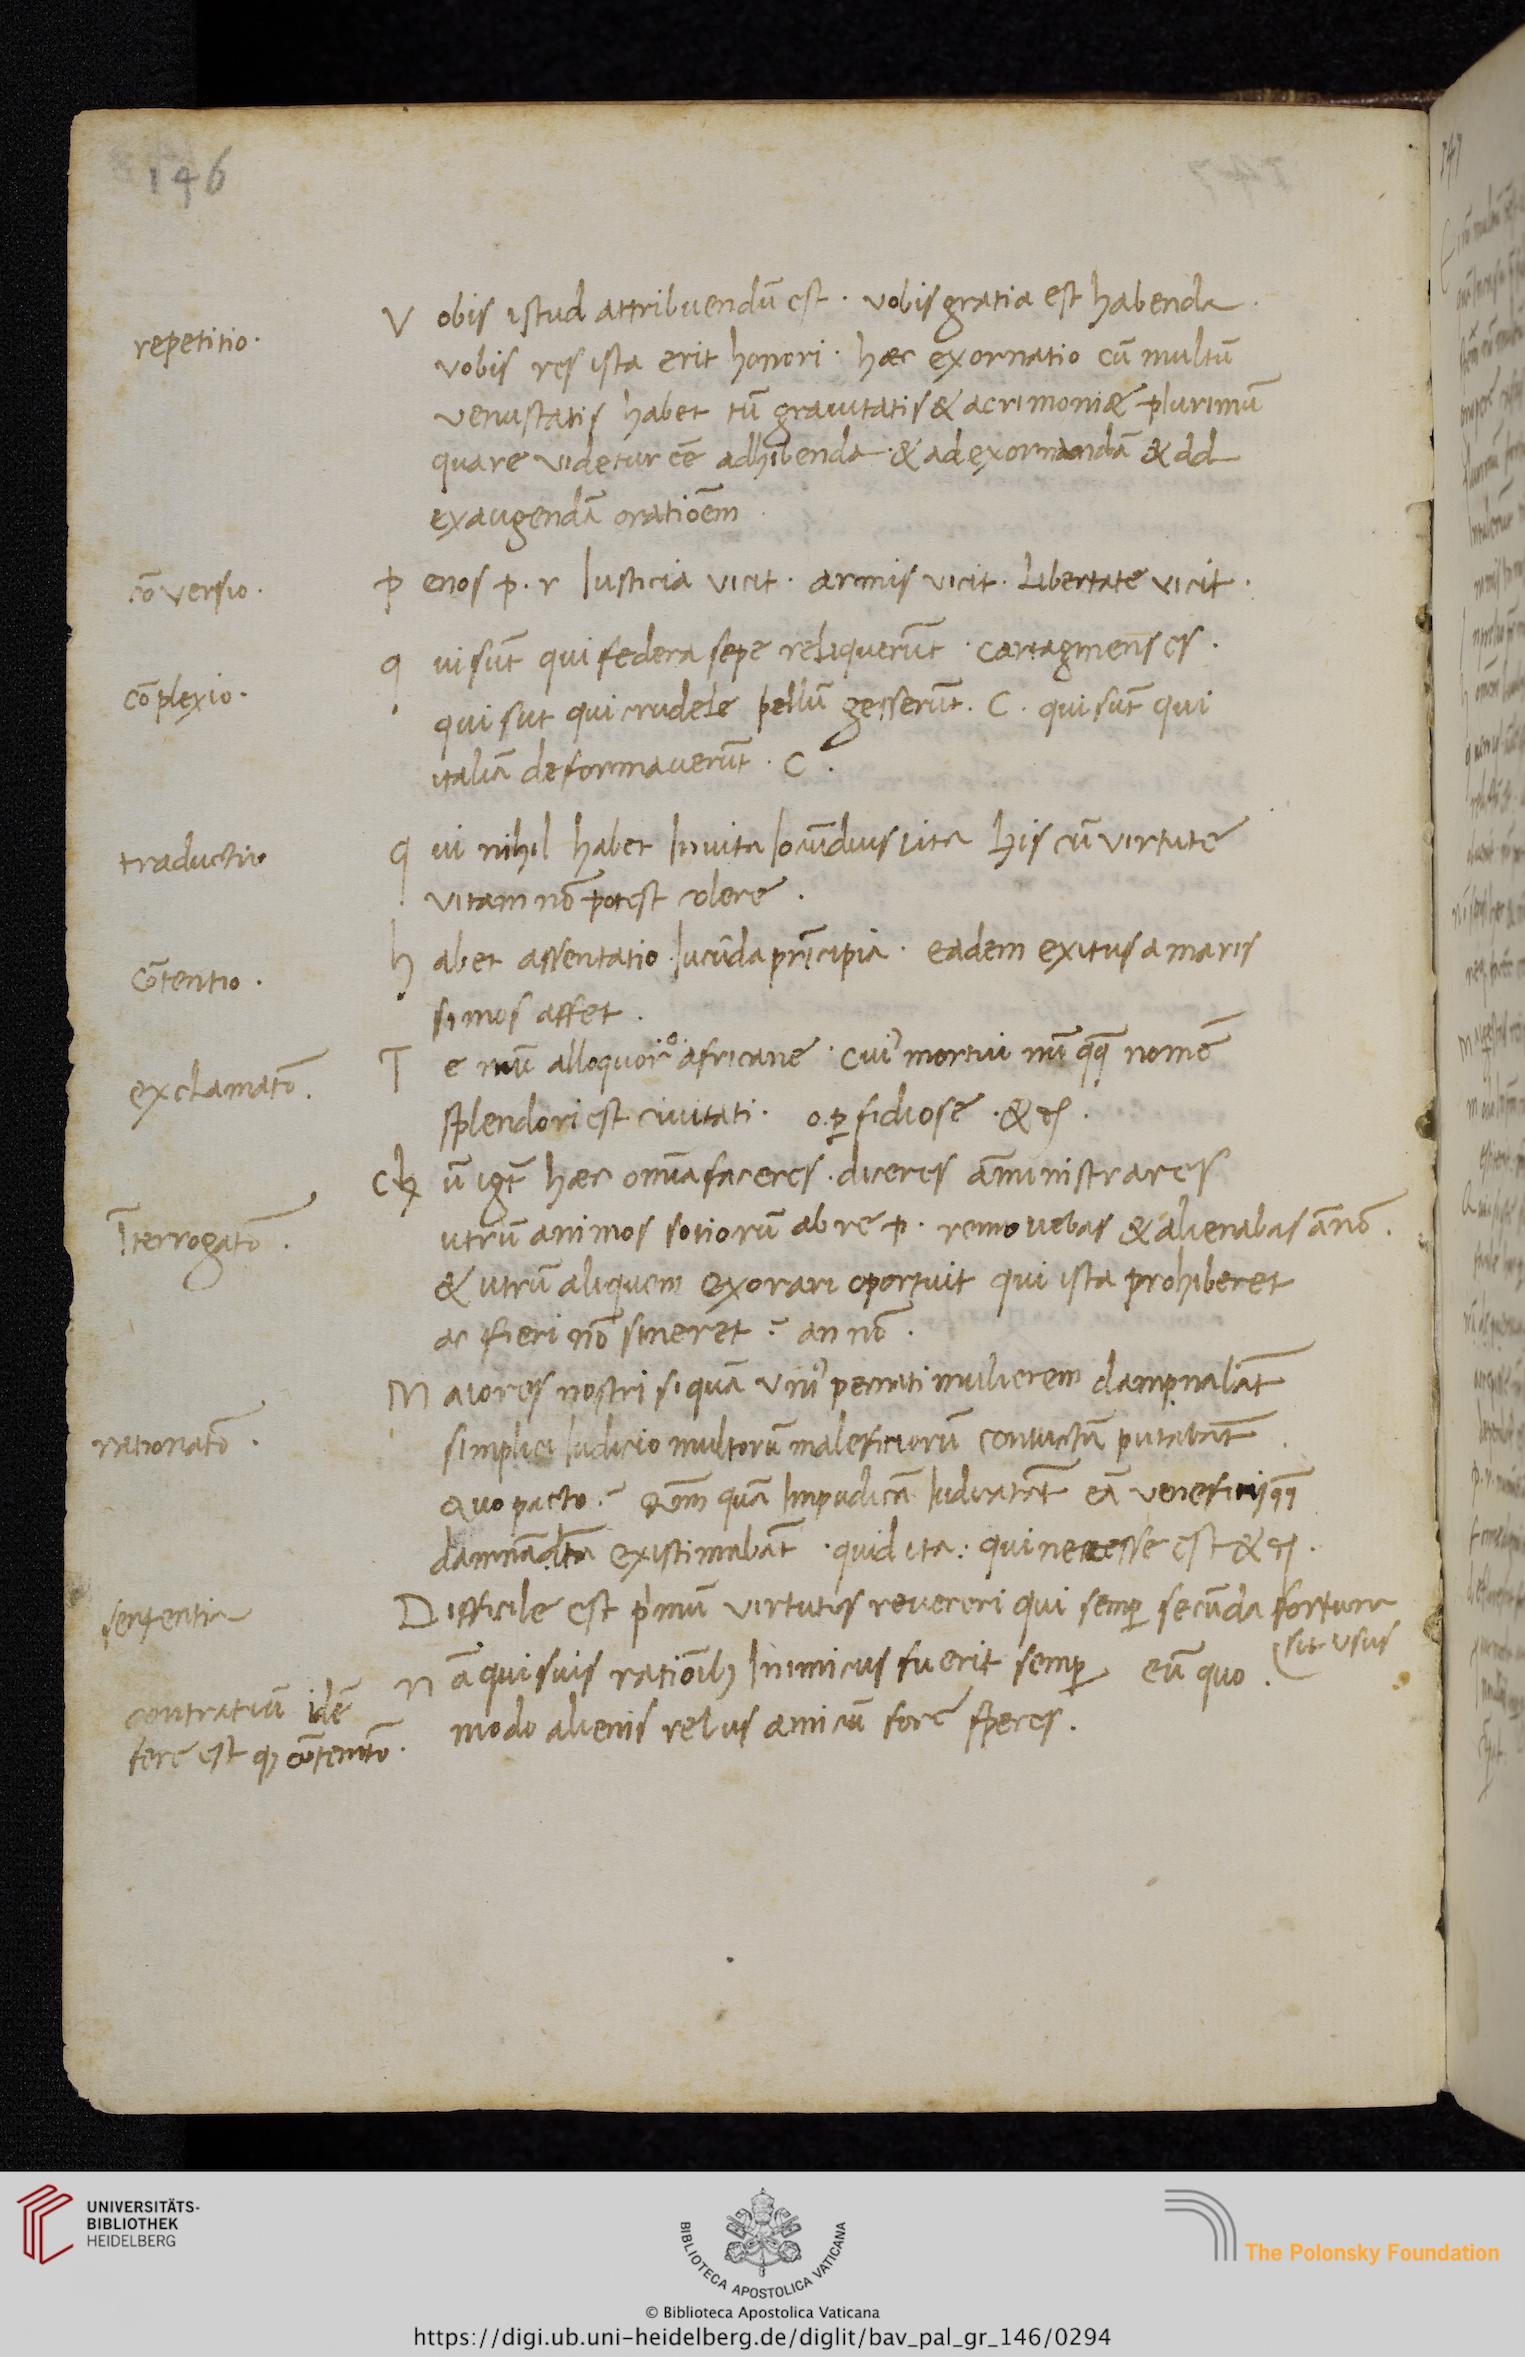 146
repetitio.
V obis istud attribuendū est. vobis gratia est habenda.
vobis res ista erit honori. hæc exornatio cū multū
venustatis habet tū gravitatis & acrimoniæ plurimū
quare videtur eē adhibenda. & ad exornandā & ad
exaugendā oratiōem.
cōversio.
p enos p. r Iusticia vicit. armis vicit. Libertate vicit.
cōplexio.
q ui sūt qui federa sepe reliquerūt. cartaginenses.
qui sūt qui crudele bellū gesserūt. C. qui sūt qui
italiā deformaverūt. C.
traductio
q ui nihil habet In vita Iocūdius vita his cū virtute
vitam nō potest colere.
cōtentio.
h abet assentatio Iucūda prīcipia. eadem exitus amaris
simos affet.
exclamatō.
T e nūc alloquor africane. cui mortui nū qq nomē
splendori est civitati. o. ꝑfidiose. &
Īterrogatō.
ū igt hæc omīa faceres. diceres āministrares
utrū animos sotiorū ab re p. removebas & alienabas ānō.
& utrū aliquem exorari oportuit qui ista prohiberet
ac fieri nō sineret? an nō.
rationatō.
M aiores nostri si quā vni peccati mulierem dampnabāt
simplici Iudicio multorū maleficiorū convictā putabāt
quo pacto? quā Impudicā Iudicabāt eā veneficij qq
existimabāt. quid ita: qui necesse est &
sententia
Difficile est pimū virtutes revereri qui semꝑ secūda fortuna
(sit usus
contrariū idē
fere est cōtentō.
n ā qui suis ratiōibꝫ Inimicus fuerit semꝑ eū quo.
modo alienis rebus amicū fore speres.
UNIVERSITÄTS-
BIBLIOTHEK
HEIDELBERG
BIBLIOTECA APOSTOLICA VATICANA
The Polonsky Foundation
© Biblioteca Apostolica Vaticana
https://digi.ub.uni-heidelberg.de/diglit/bav_pal_gr_146/0294